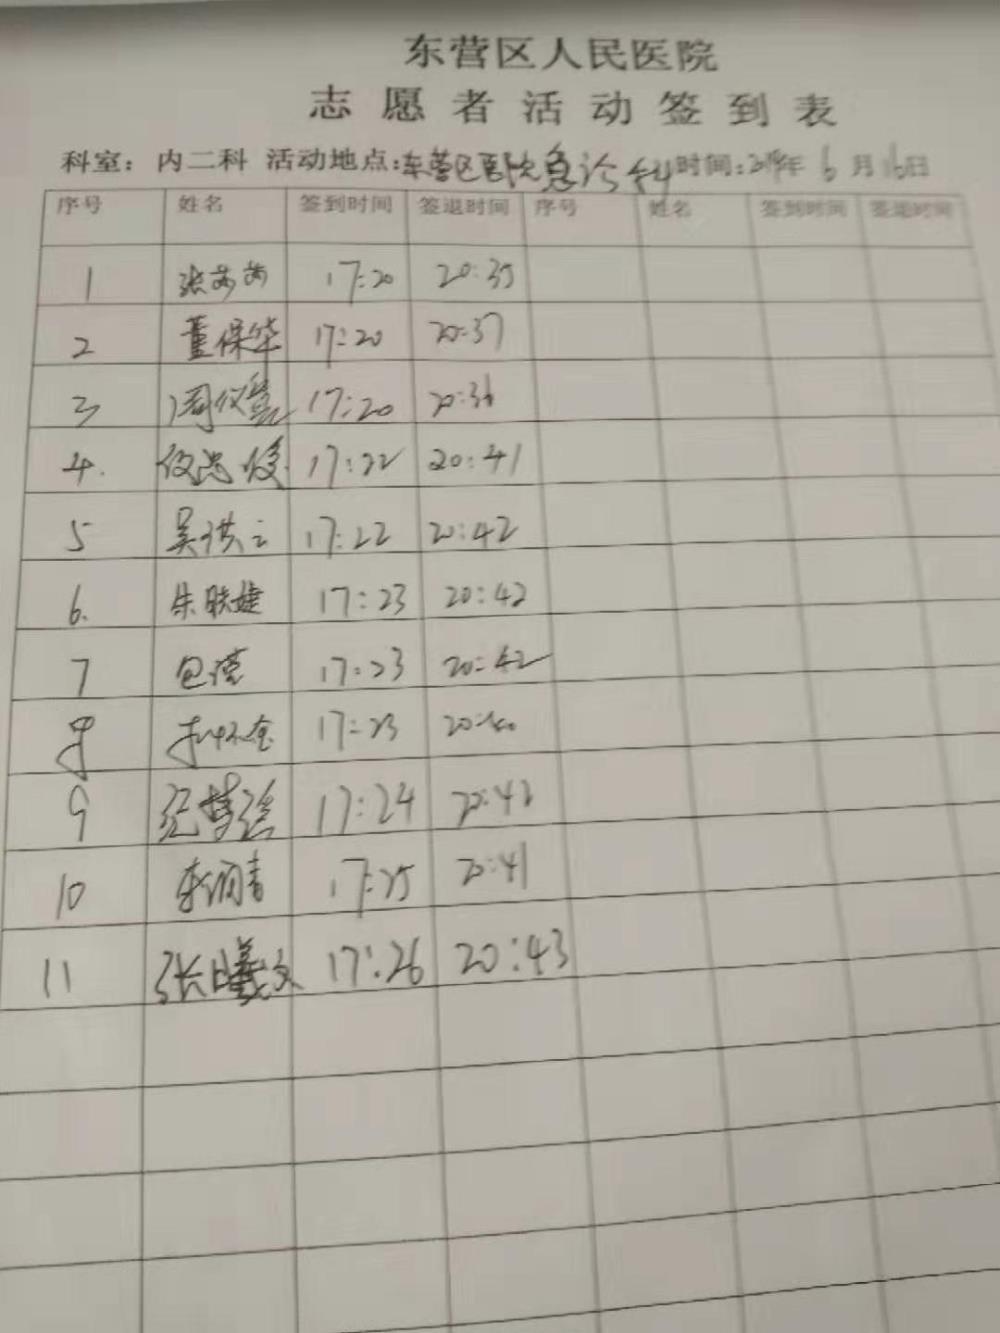 东营区人民医院
志愿者活动签到表
科室：内二科 活动地点：东营区医院急诊科 时间：2019年6月16日
序号 姓名 签到时间 签退时间 序号 姓名 签到时间 签退时间
1 17:20 20:35
2 董保华 17:20 20:37
3 17:20 20:36
4. 17:22 20:41
5 吴洪云 17:22 20:42
6. 朱联婕 17:23 20:42
7 17:23 20:42
8 17:23 20:40
9 17:24 20:42
10 李润青 17:25 20:41
11 张曦文 17:26 20:43